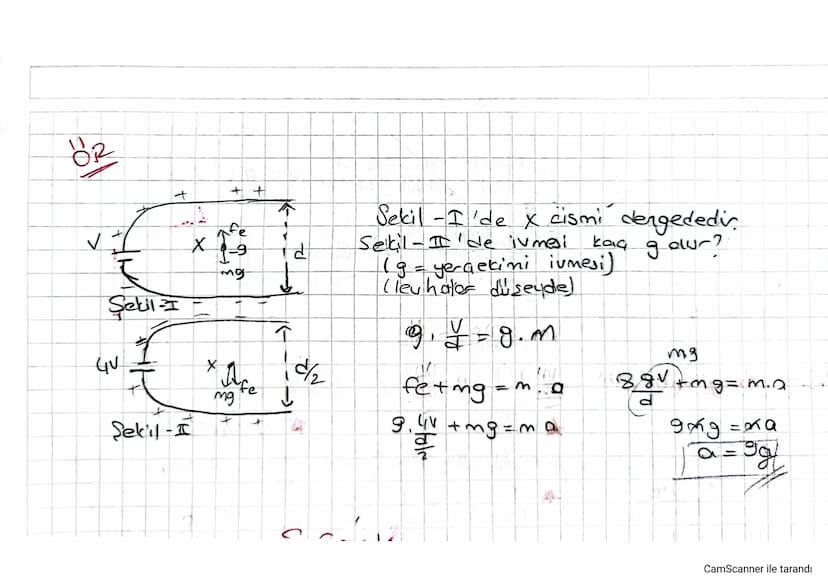 ÖR
+ + + +
V
X
fe
-q
mg
d
Şekil-I
Şekil-I'de x cismi dengededir.
Şekil-II'de ivmesi kaç g olur?
(g = yerçekimi ivmesi)
(levhalar düşeyde)
4V
x
mg
fe
d/2
Şekil-II
q. V/d = g.m
fe + mg = m. a
q. 4V/(d/2) + mg = m a
mg
8 qV/d + mg = m.a
9mg = ma
a = 9g
CamScanner ile tarandı